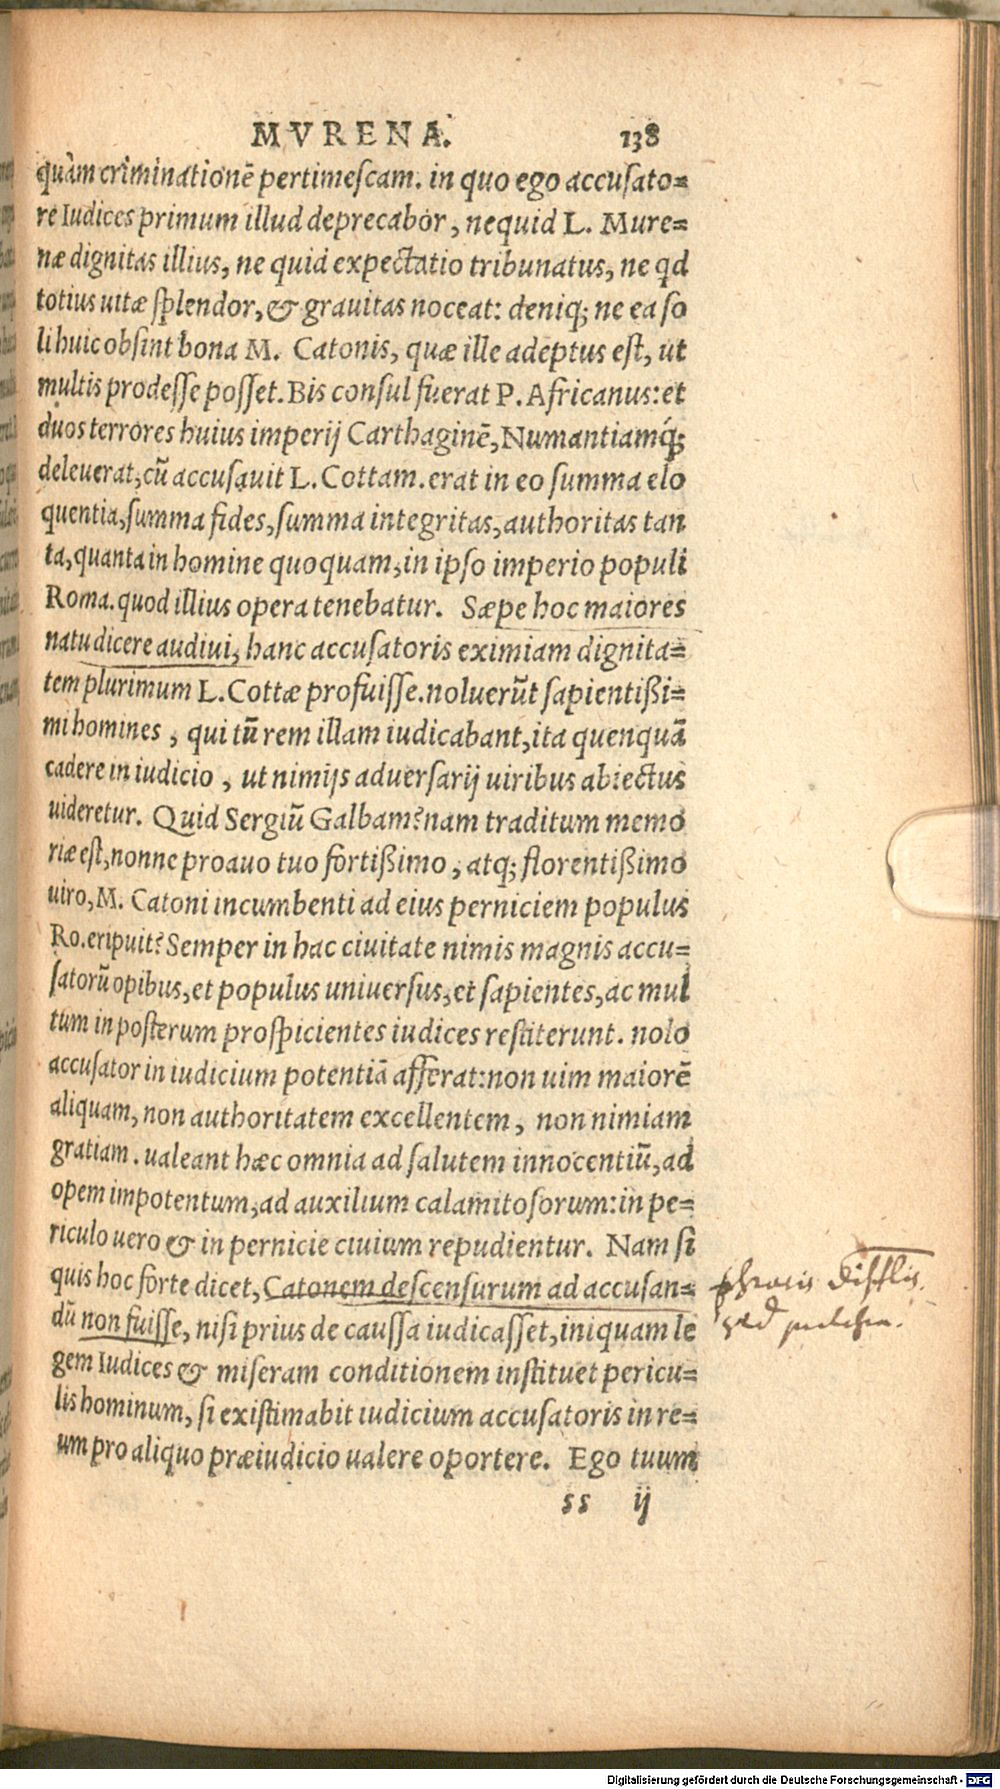 MVRENA. 138
quàm criminationẽ pertimescam. in quo ego accusato=
re Iudices primum illud deprecabor, nequid L. Mure=
næ dignitas illius, ne quid expectatio tribunatus, ne qd
totius uitæ splendor, & grauitas noceat: deniq; ne ea so
li huic obsint bona M. Catonis, quæ ille adeptus est, ut
multis prodesse posset. Bis consul fuerat P. Africanus: et
duos terrores huius imperij Carthaginẽ, Numantiamq́;
deleuerat, cũ accusauit L. Cottam. erat in eo summa elo
quentia, summa fides, summa integritas, authoritas tan
ta, quanta in homine quoquam, in ipso imperio populi
Roma. quod illius opera tenebatur. Sæpe hoc maiores
natu dicere audiui, hanc accusatoris eximiam dignita=
tem plurimum L. Cottæ profuisse. noluerũt sapientißi=
mi homines, qui tũ rem illam iudicabant, ita quenquã
cadere in iudicio, ut nimijs aduersarij uiribus abiectus
uideretur. Quid Sergiũ Galbam? nam traditum memo
riæ est, nonne proauo tuo fortißimo, atq; florentißimo
uiro, M. Catoni incumbenti ad eius perniciem populus
Ro. eripuit? Semper in hac ciuitate nimis magnis accu=
satorũ opibus, et populus uniuersus, et sapientes, ac mul
tum in posterum prospicientes iudices restiterunt. nolo
accusator in iudicium potentiã afferat: non uim maiorẽ
aliquam, non authoritatem excellentem, non nimiam
gratiam. ualeant hæc omnia ad salutem innocentiũ, ad
opem impotentum, ad auxilium calamitosorum: in pe=
riculo uero & in pernicie ciuium repudientur. Nam si
quis hoc forte dicet, Catonem descensurum ad accusan=
dũ non fuisse, nisi prius de caussa iudicasset, iniquam le
gem Iudices & miseram conditionem instituet pericu=
lis hominum, si existimabit iudicium accusatoris in re=
um pro aliquo præiudicio ualere oportere. Ego tuum
ss ij
Digitalisierung gefördert durch die Deutsche Forschungsgemeinschaft - DFG